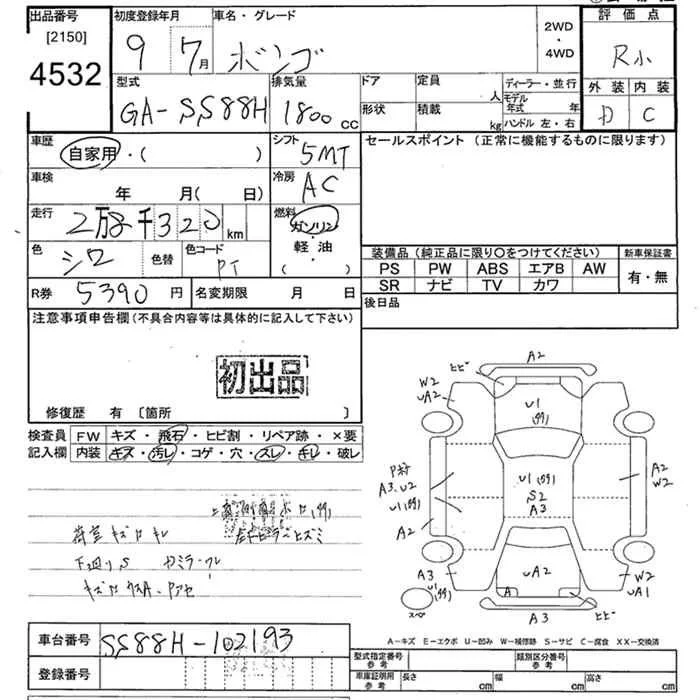 出品番号
[2150]
4532
初度登録年月
9 7月
車名・グレード
ボンゴ
2WD
・
4WD
評価点
R小
外装 内装
D C
型式
GA-SS88H
排気量
1800 cc
ドア
形状
定員
人
積載
kg
ディーラー・並行
モデル年式 年
ハンドル 左・右
車歴
自家用・( )
シフト
5MT
車検
年 月( 日)
冷房
AC
走行
2万8千320 km
燃料
ガソリン
軽・油
( )
色
シロ
色替
色コード
PT
R券 5390円
名変期限 月 日
セールスポイント (正常に機能するものに限ります)
装備品(純正品に限り○をつけてください)
PS PW ABS エアB AW
SR ナビ TV カワ
新車保証書
有・無
後日品
注意事項申告欄(不具合内容等は具体的に記入して下さい)
初出品
修復歴 有〔箇所 〕
検査員記入欄
FW キズ・飛石・ヒビ割・リペア跡・×要
内装 キズ・汚レ・コゲ・穴・スレ・キレ・破レ
荷室 キズ ロ キレ
下廻りS
A2
ヒビ
W2
UA2
U1
(99)
P村
A3.U2
U1(99)
A2
U1(99)
S2
A3
A2
W2
A3
U1
(99)
UA2
A
W2
UA1
スペ
A3
ヒビ
A-キズ E-エクボ U-凹み W-補修跡 S-サビ C-腐食 XX-交換済
車台番号 SS88H-102193
登録番号
型式指定番号
参考
類別区分番号
参考
車庫証明用
参考
長さ cm
幅 cm
高さ cm